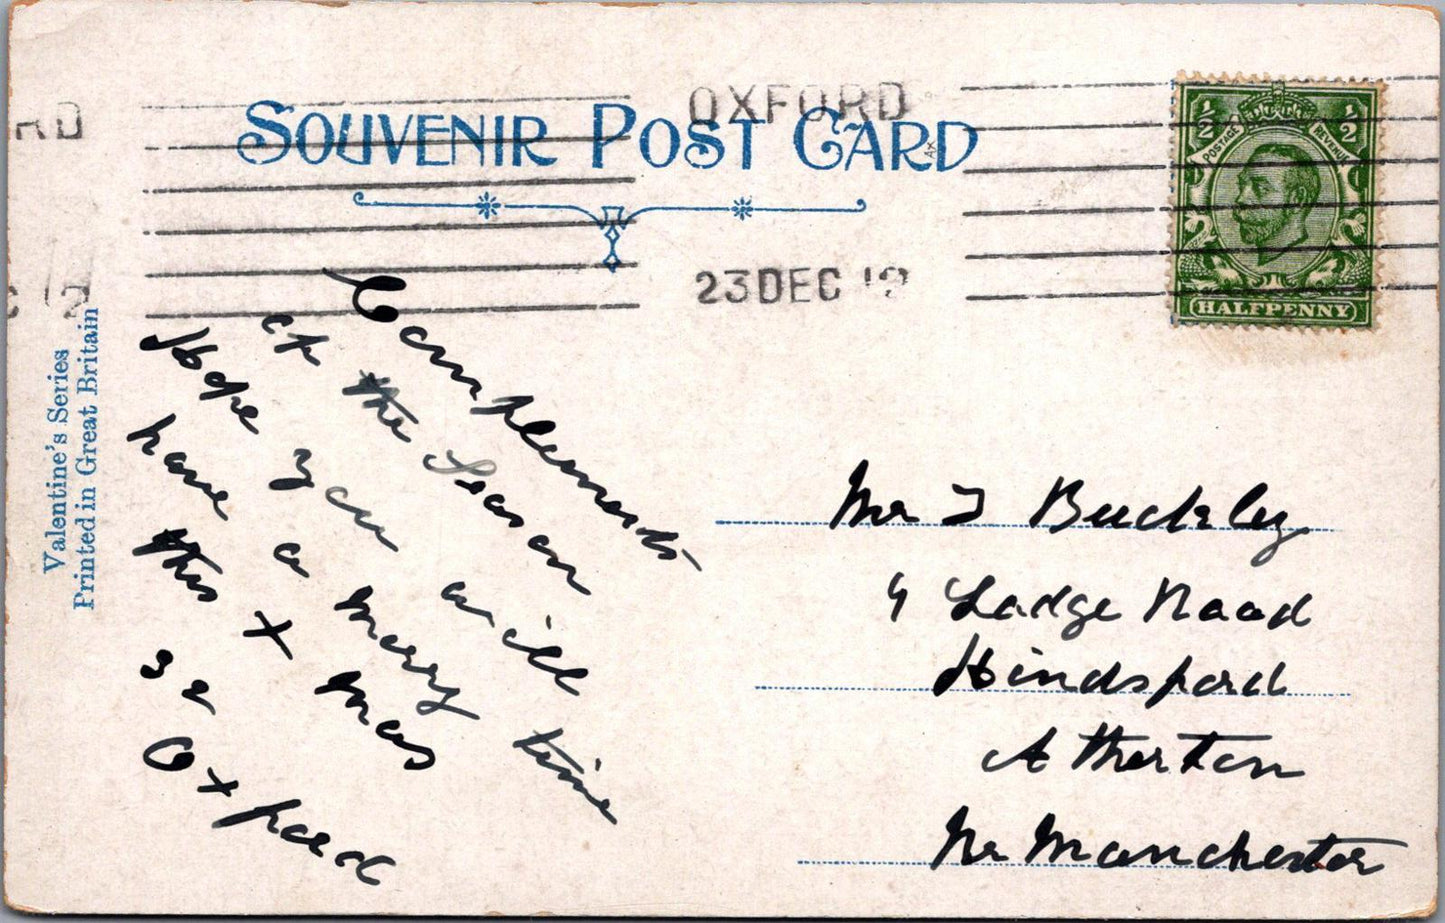 SOUVENIR POST CARD
OXFORD
23 DEC 12
RD
C 12
½ ½
POSTAGE REVENUE
HALFPENNY
Valentine's Series
Printed in Great Britain
Compliments
of the Season
Hope you will
have a merry time
this Xmas
Oxford
Mr J Buckley
9 Lodge Road
Hindsford
Atherton
Nr Manchester